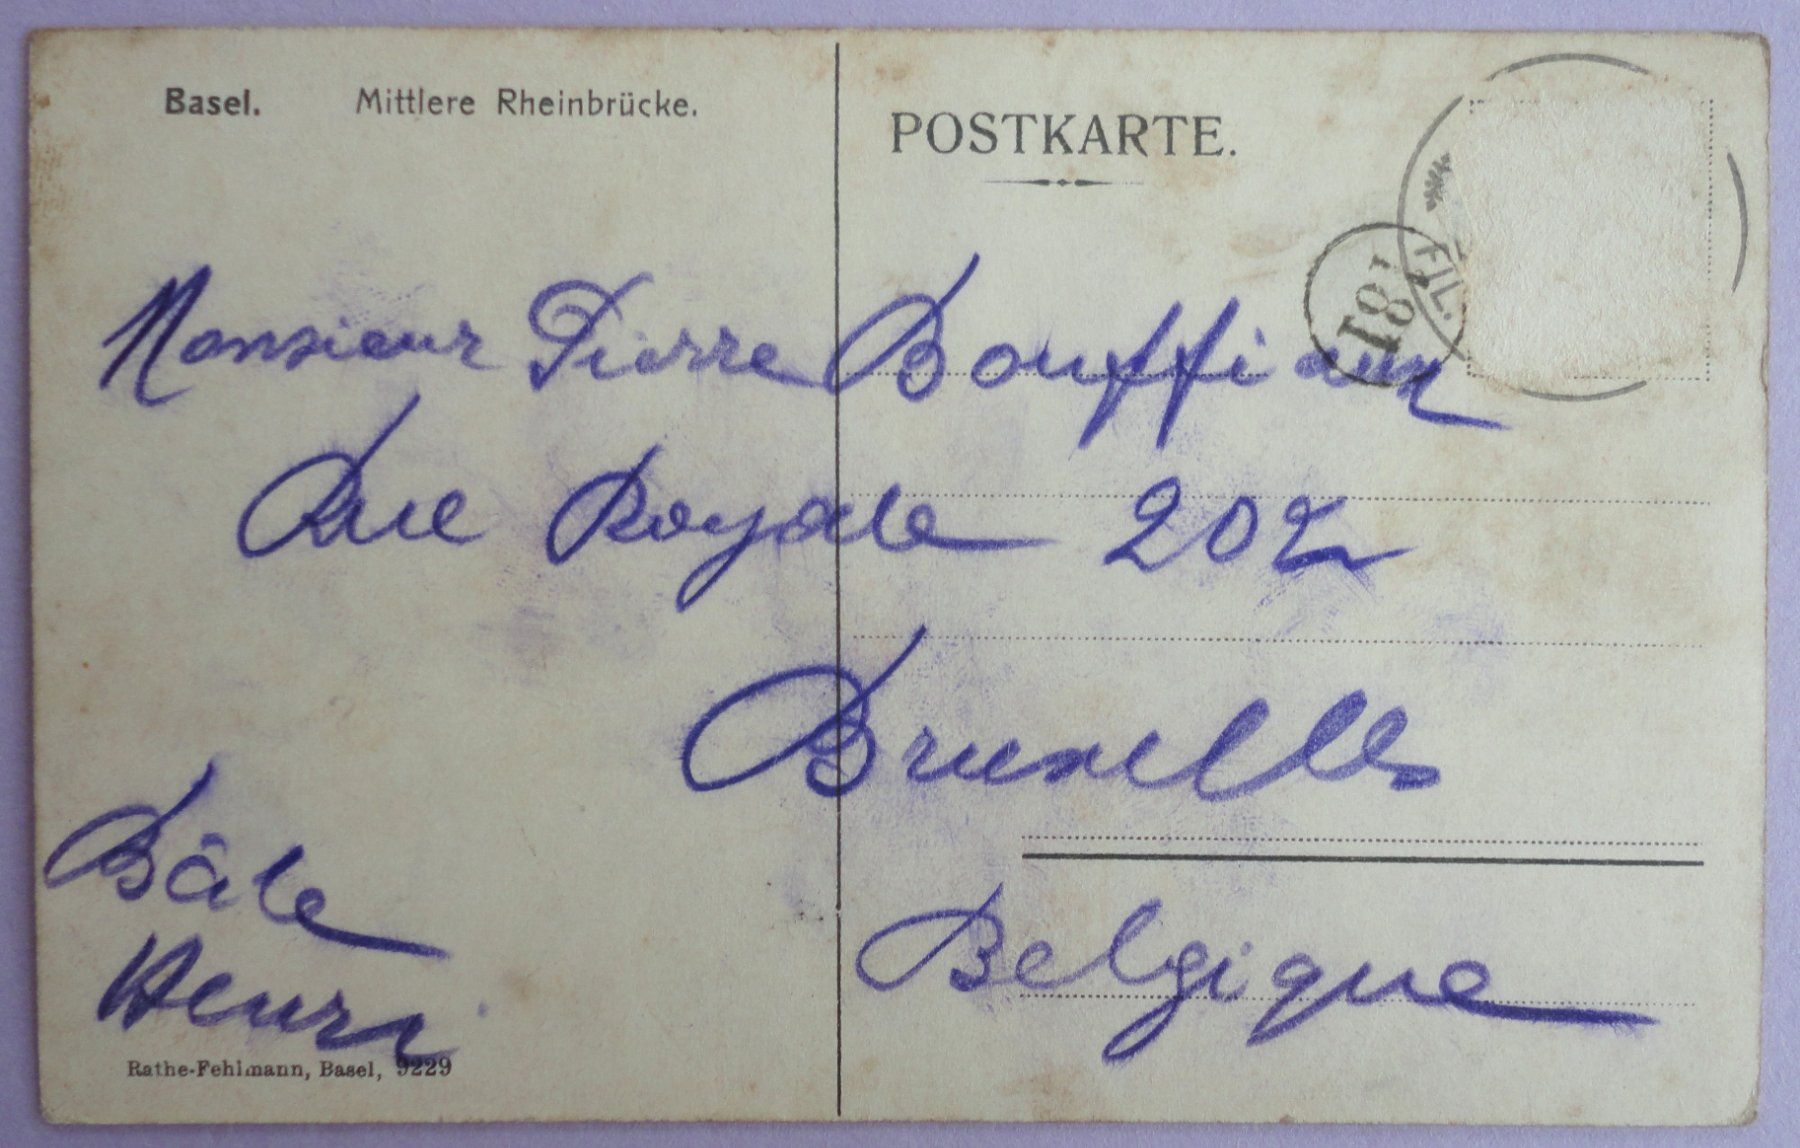 Basel. Mittlere Rheinbrücke.
POSTKARTE.
FIL.
18I
Monsieur Pierre Bouffiaux
Rue Royale 202
Bruxelles
Belgique
Bâle
Henri
Rathe-Fehlmann, Basel, 9229